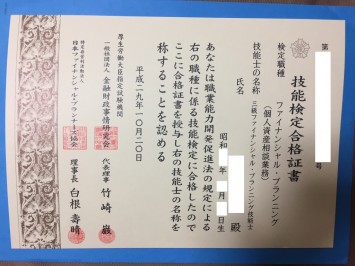 第
号
技能検定合格証書
検定職種
ファイナンシャル・プランニング
(個人資産相談業務)
技能士の名称
三級ファイナンシャル・プランニング技能士
氏名
殿
昭和 年 月 日生
あなたは職業能力開発促進法の規定による
右の職種に係る技能検定に合格したので
ここに合格証書を授与し右の技能士の名称を
称することを認める
平成二九年一〇月二〇日
厚生労働大臣指定試験機関
一般社団法人 金融財政事情研究会
代表理事 竹崎 巖
特定非営利活動法人
日本ファイナンシャル・プランナーズ協会
理事長 白根 壽晴